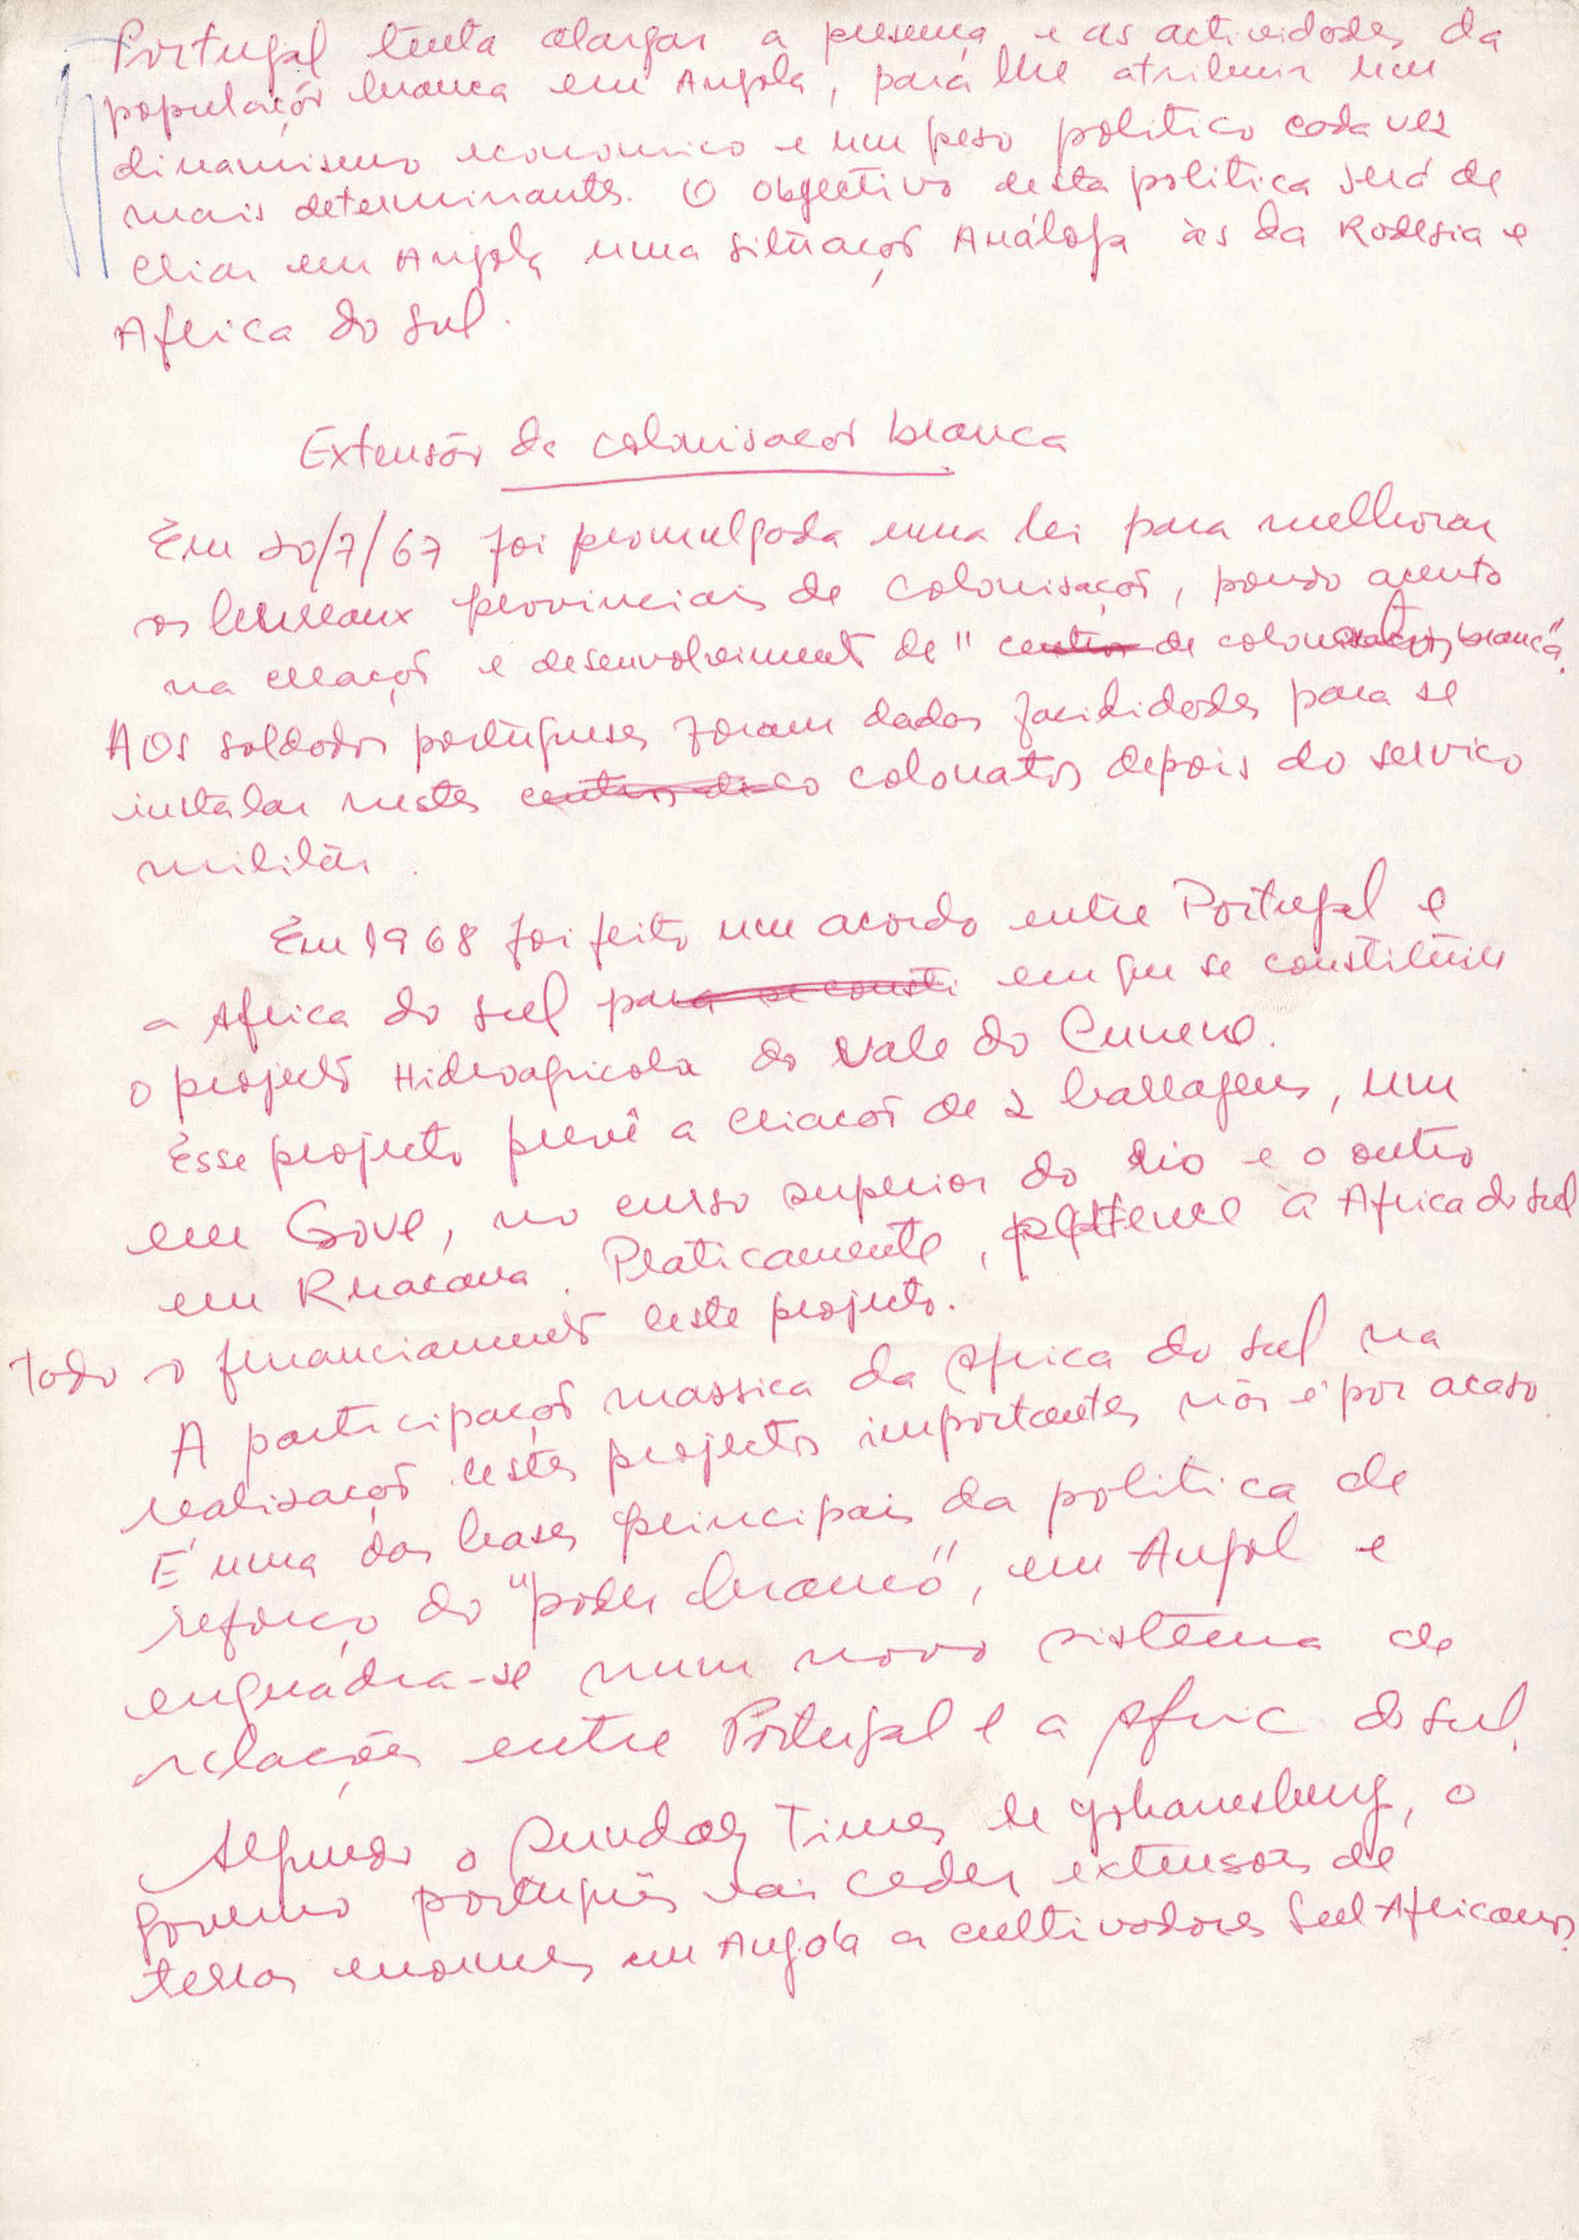 Portugal tenta alargar a presença e as actividades da
população branca em Angola, para lhe atribuir um
dinamismo economico e um peso politico cada vez
mais determinante. O objectivo desta politica será de
criar em Angola uma situação Análoga às da Rodesia e
Africa do Sul.
Extensão da colonisação branca
Em 20/7/67 foi promulgada uma lei para melhorar
os bureaux provinciais de colonisação, pondo acento
na criação e desenvolvimento de "centros de colonisação branca".
Aos soldados portugueses foram dadas facilidades para se
instalar nestes centros de co colonatos depois do serviço
militar.
Em 1968 foi feito um acordo entre Portugal e
a Africa do Sul para se consti em que se constituiu
o projecto Hidroagricola do Vale do Cunene.
Esse projecto prevê a criação de 2 barragens, um
em Gove, no curso superior do rio e o outro
em Ruacana. Praticamente, pertence à Africa do Sul
todo o financiamento deste projecto.
A participação massica da Africa do Sul na
realisação destes projectos importantes não é por acaso.
É uma das bases principais da politica de
reforço do "poder branco", em Angol e
enquadra-se num novo sistema de
relações entre Portugal e a Afric do Sul.
Segundo o Sunday Times de Johanesburg, o
governo português vai ceder extensões de
terras enormes em Angola a cultivadores Sul Africanos.